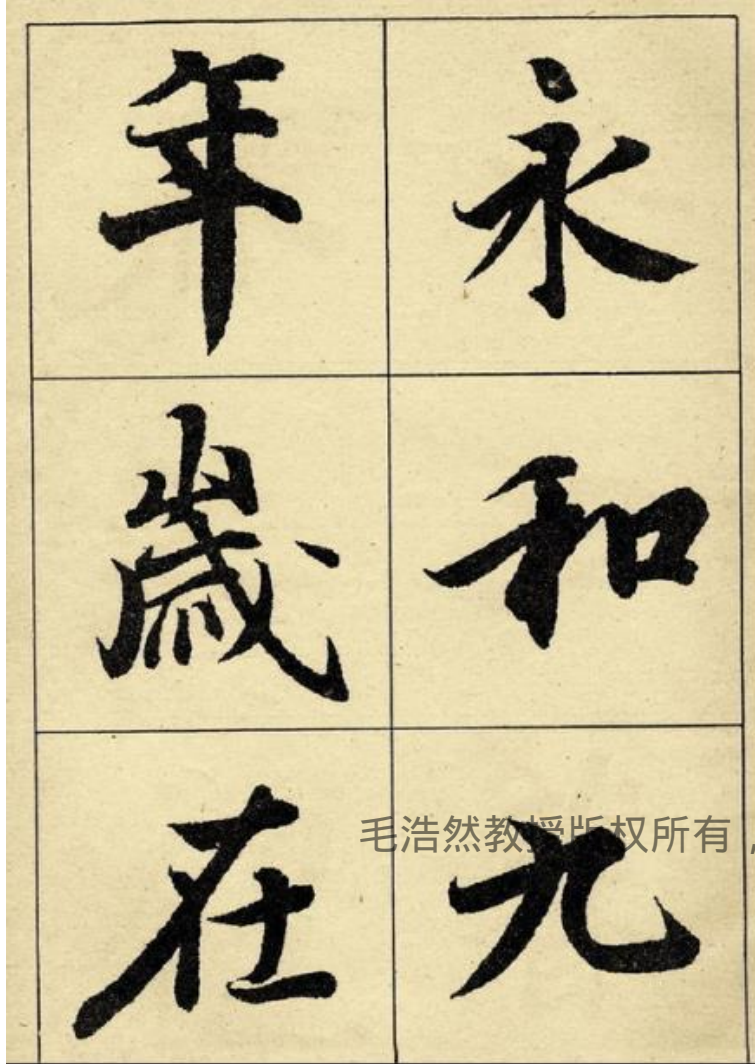 永和九
年歲在
毛浩然教授版权所有，